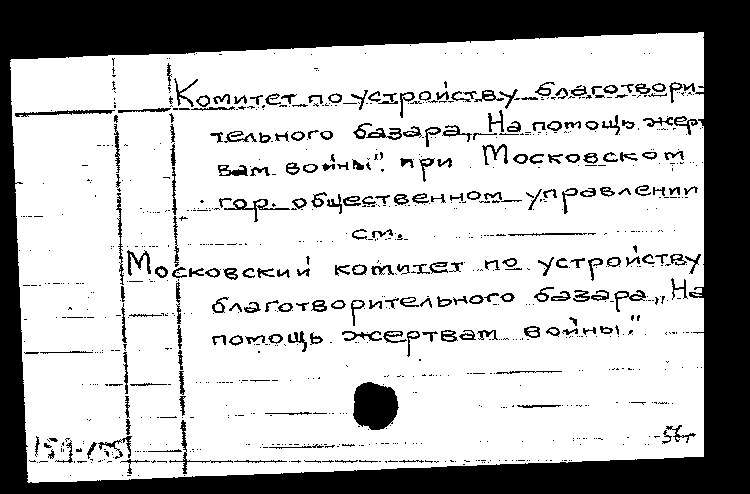 Комитет по устройству благотвори-
тельного базара „На помощь жерт
вам войны". при Московском
гор. общественном управлении
см.
Московский комитет по устройству
благотворительного базара „На
помощь жертвам войны."